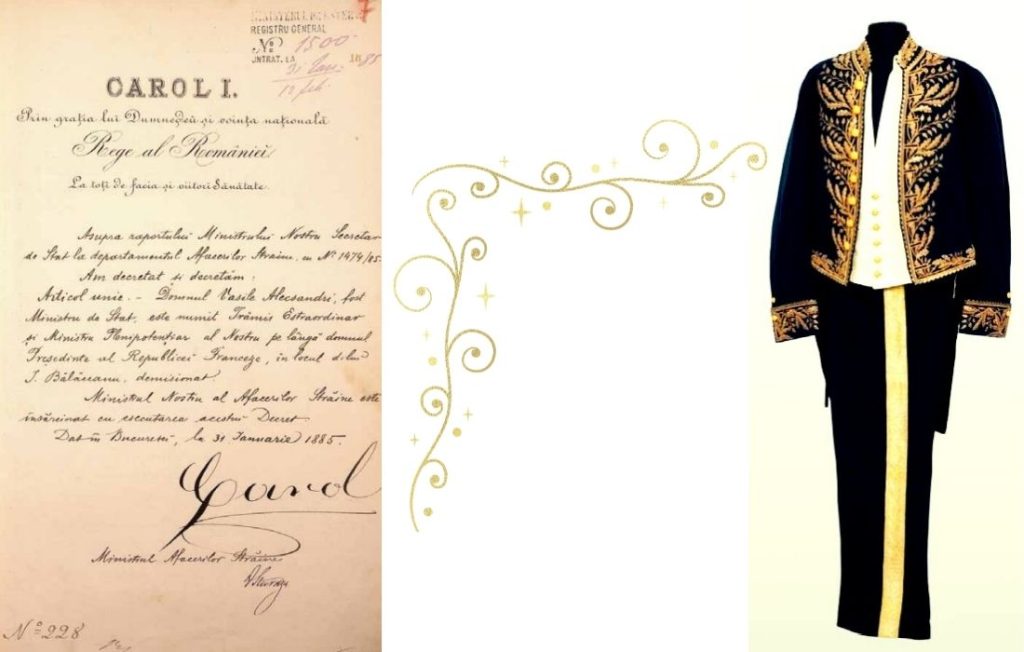 7
MINISTERUL DE EXTERNE
REGISTRU GENERAL
No 1500
INTRAT. LA 1885
31 Ian.
12 feb.
CAROL I.
Prin grația lui Dumnezeu și voința națională
Rege al României,
La toți de facia și viitori Sănătate.
Asupra raportului Ministrului Nostru Secretar
de Stat la departamentul Afacerilor Străine, cu No 1474/85
Am decretat și decretăm:
Articol unic. - Domnul Vasile Alecsandri, fost
Ministru de Stat, este numit Trămis Estraordinar
și Ministru Plenipotențiar al Nostru pe lângă domnul
Președinte al Republicei Franceze, în locul d-lui
I. Bălăceanu, demisionat.
Ministrul Nostru al Afacerilor Străine este
însărcinat cu esecutarea acestui Decret
Dat în Bucuresci, la 31 Ianuarie 1885.
Carol
Ministrul Afacerilor Străine
D Sturdza
No 228